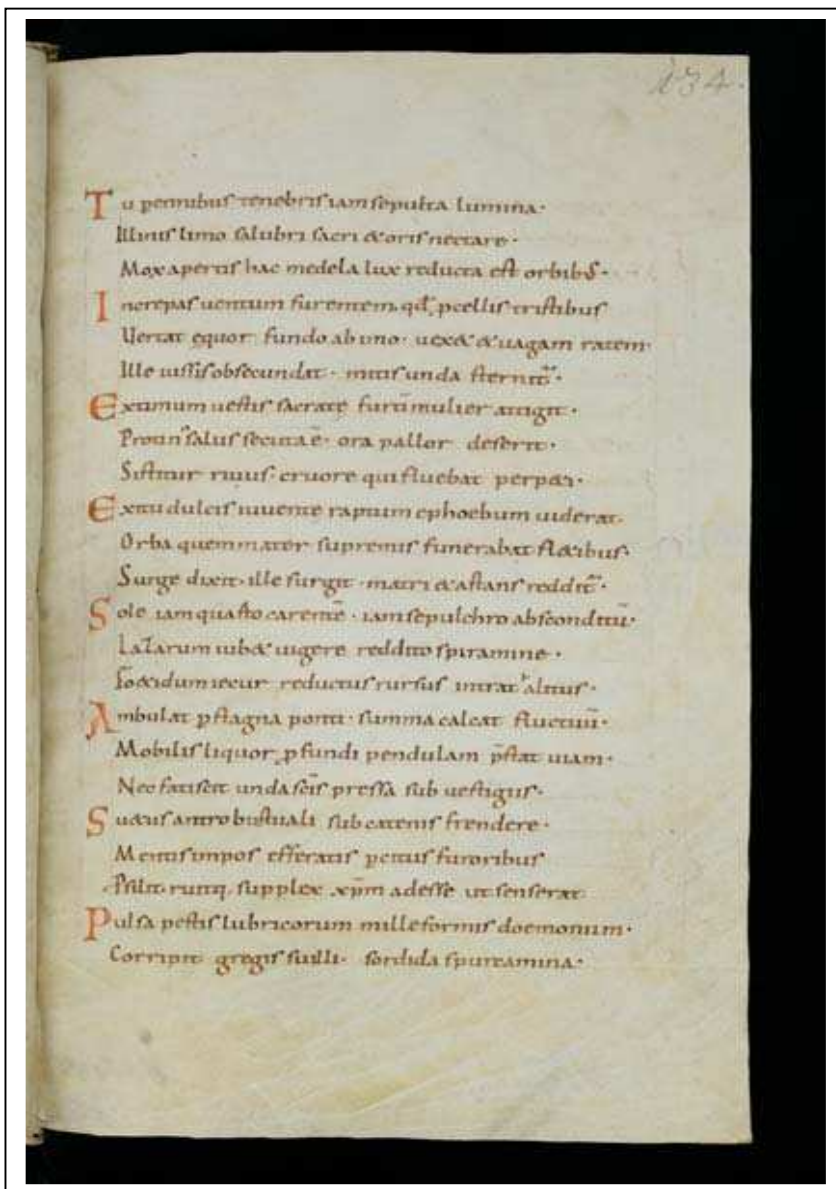 134.
Tu pennibus tenebris iam sepulta lumina·
Illinis limo salubri sacri & oris nectare·
Mox apertis hac medela lux reducta est orbibꝰ·
Increpas uentum furentem qđ pcellis tristibus
Uertat ęquor fundo ab uno· uex& & uagam ratem·
Ille iussis obsecundat· mitis unda sternit̃·
Extimum uestis sacratę furtĩ mulier attigit·
Protinꝰ salus secuta ẽ· ora pallor deserit·
Sistitur riuus· cruore qui fluebat perp&i·
Exitu dulcis iuuentę raptum ephoebum uiderat·
Orba quem mater supremis funerabat fl&ibus·
Surge dixit· ille surgit· matri & astans reddit̃·
Sole iam quarto carentẽ· iam sepulchro absconditũ·
Lazarum iub& uigere reddito spiramine·
Fo&idum iecur reductus rursus intrat alitus·
Ambulat p stagna ponti· summa calcat fluctuũ·
Mobilis liquor pfundi pendulam p̃stat uiam·
Nec fatiscit unda sc̃is pressa sub uestigiis·
Su&us antro bustuali sub catenis frendere·
Mentis impos efferatis percitus furoribus
Psilit· ruitq· supplex xp̃m adesse ut senserat·
Pulsa pestis lubricorum milleformis doemonum·
Corripit gregis suilli· sordida spurcamina·